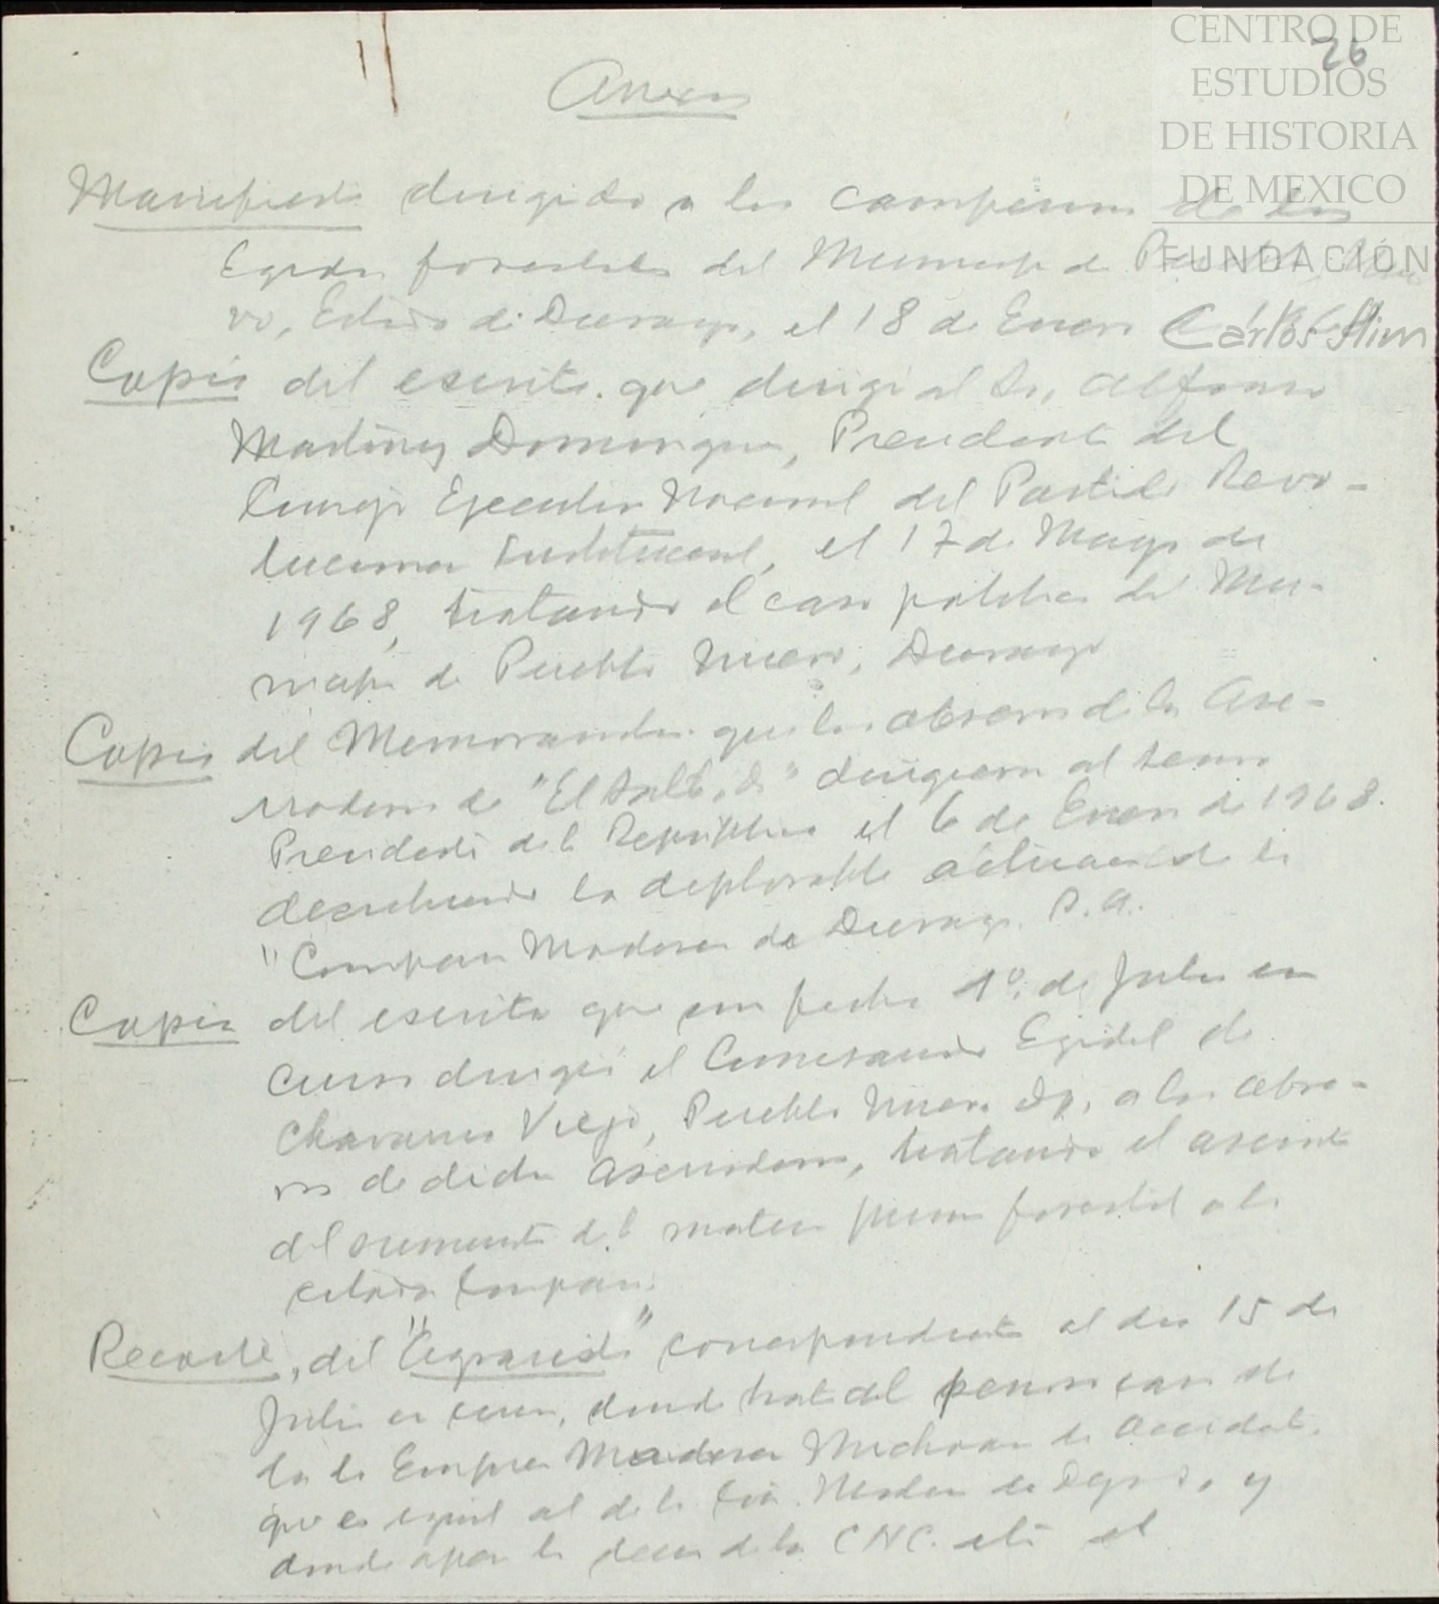 CENTRO DE
ESTUDIOS
DE HISTORIA
DE MEXICO
FUNDACIÓN
Carlos Slim
26
Anexos
Manifiesto dirigido a los campesinos de los
Egidos forestales del Municipio de Pueblo Nue
vo, Estado de Durango, el 18 de Enero
Copia del escrito que dirigi al Sr. Alfonso
Martinez Dominguez, Presidente del
Consejo Ejecutivo Nacional del Partido Revo-
lucionario Institucional, el 17 de Mayo de
1968, tratando el caso politico del Mu-
nicipio de Pueblo Nuevo, Durango
Copia del Memorandum que los obreros de la Ase-
rradero de "El Salto, D" dirigieron al Señor
Presidente de la Republica el 6 de Enero de 1968.
describiendo la deplorable actuación de la
"Compañia Maderera de Durango S.A.
Copia del escrito que con fecha 1º de Julio en
curso dirigió el Comisariado Egidal de
Chavarria Viejo, Pueblo Nuevo Dgo. a los obre-
ros de dicho aserradero, tratando el asunto
del suministro de la materia prima forestal a la
citada Compañia.
Recorte, del correspondiente al dia 15 de
Julio en curso, donde trata del caso de
la de Empresa Maderera Michoacana de Occidente,
que es igual al de la Cia. Maderera de Dgo S. y
donde la CNC. el